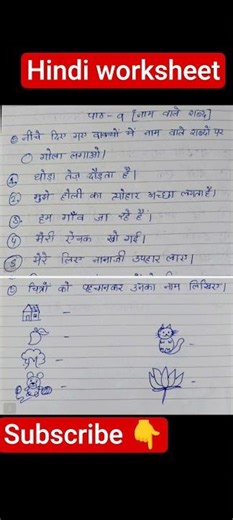 Hindi worksheet
पाठ-१ [नाम वाले शब्द]
नीचे दिए गए वाक्यों में नाम वाले शब्दों पर
गोला लगाओ।
1. घोड़ा तेज़ दौड़ता है।
2. मुझे होली का त्योहार अच्छा लगता है।
3. हम गाँव जा रहे है।
4 मेरी ऐनक खो गई।
5 मेरे लिए नानाजी उपहार लाए।
चित्रों को पहचानकर उनका नाम लिखिए।
Subscribe 👇